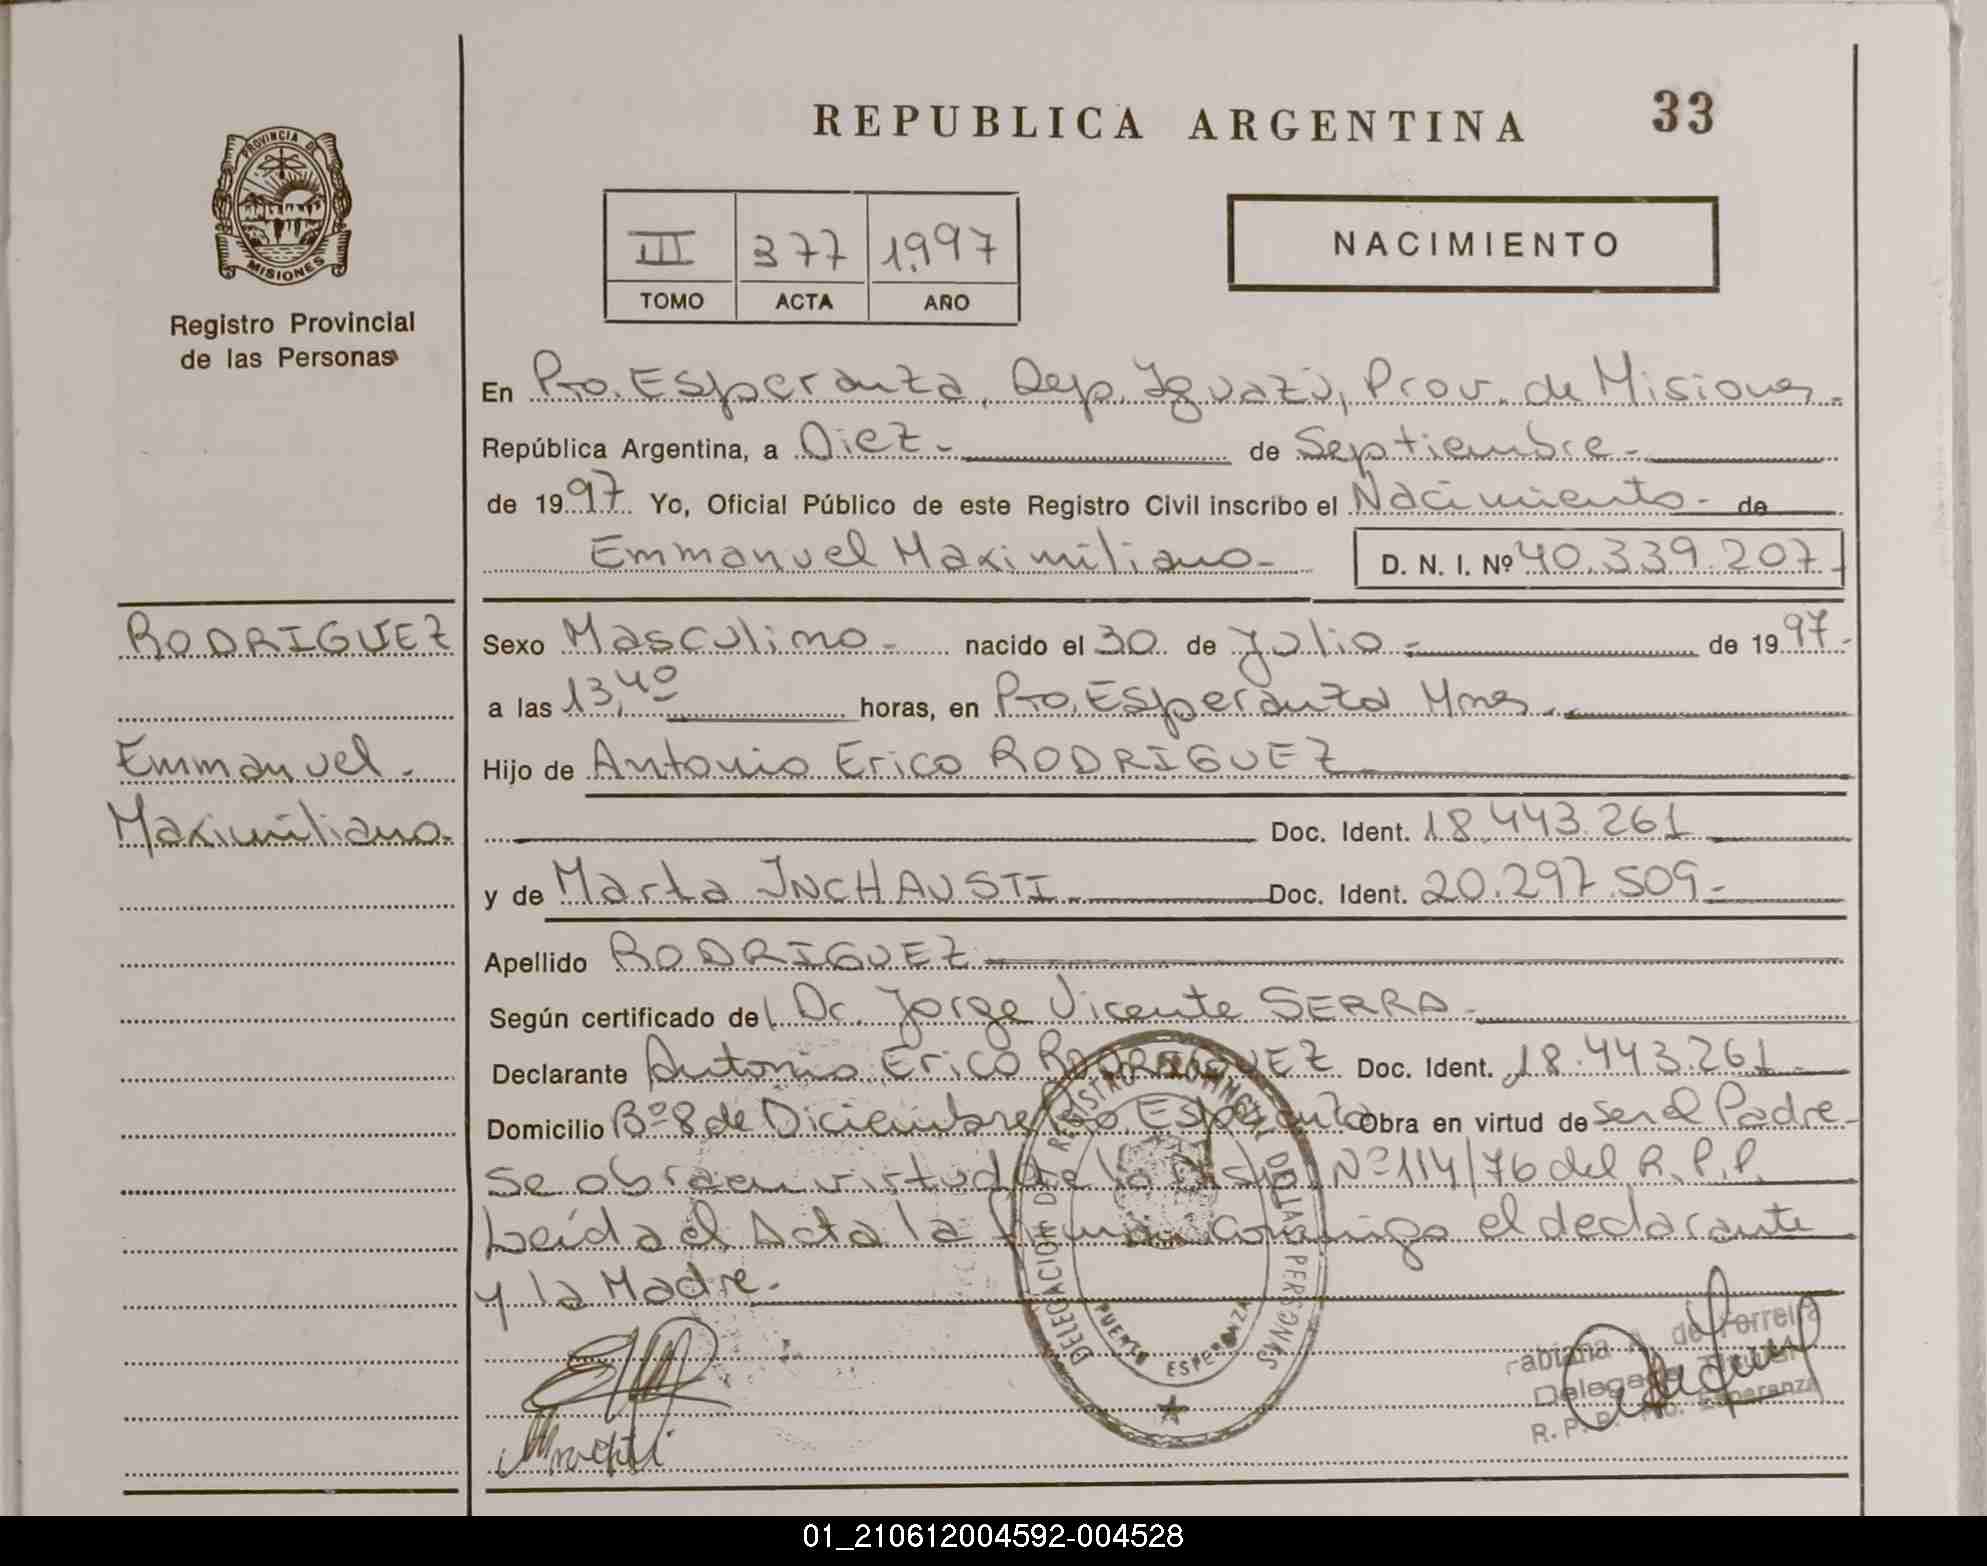 REPUBLICA ARGENTINA
33
PROVINCIA DE
MISIONES
Registro Provincial
de las Personas
III 377 1.997
TOMO ACTA AÑO
NACIMIENTO
En Pto. Esperanza, Dep. Iguazú, Prov. de Misiones.
República Argentina, a Diez.- de Septiembre.-
de 1997. Yo, Oficial Público de este Registro Civil inscribo el Nacimiento - de
Emmanuel Maximiliano- D. N. I. Nº 40.339.207.-
RODRIGUEZ
Emmanuel.
Maximiliano.
Sexo Masculino.- nacido el 30 de Julio.- de 1997.-
a las 13,40 horas, en Pto. Esperanza Mnes.
Hijo de Antonio Erico RODRIGUEZ
Doc. Ident. 18.443.261
y de Marta INCHAUSTI.- Doc. Ident. 20.297.509.-
Apellido RODRIGUEZ.-
Según certificado del Dr. Jorge Vicente SERRA.-
Declarante Antonio Erico RODRIGUEZ Doc. Ident. 18.443.261
Domicilio Bº 8 de Diciembre Pto Esperanza Obra en virtud de ser el Padre.-
Se obra en virtud de la Disp. Nº 114/76 del R.P.P.
Leída el Acta la firman conmigo el declarante
y la Madre.-
DELEGACION DE REGISTRO PROVINCIAL DE LAS PERSONAS
PUERTO ESPERANZA
Fabiana A. de Ferreira
Delegada Titular
R. P. P. Pto. Esperanza
01_210612004592-004528